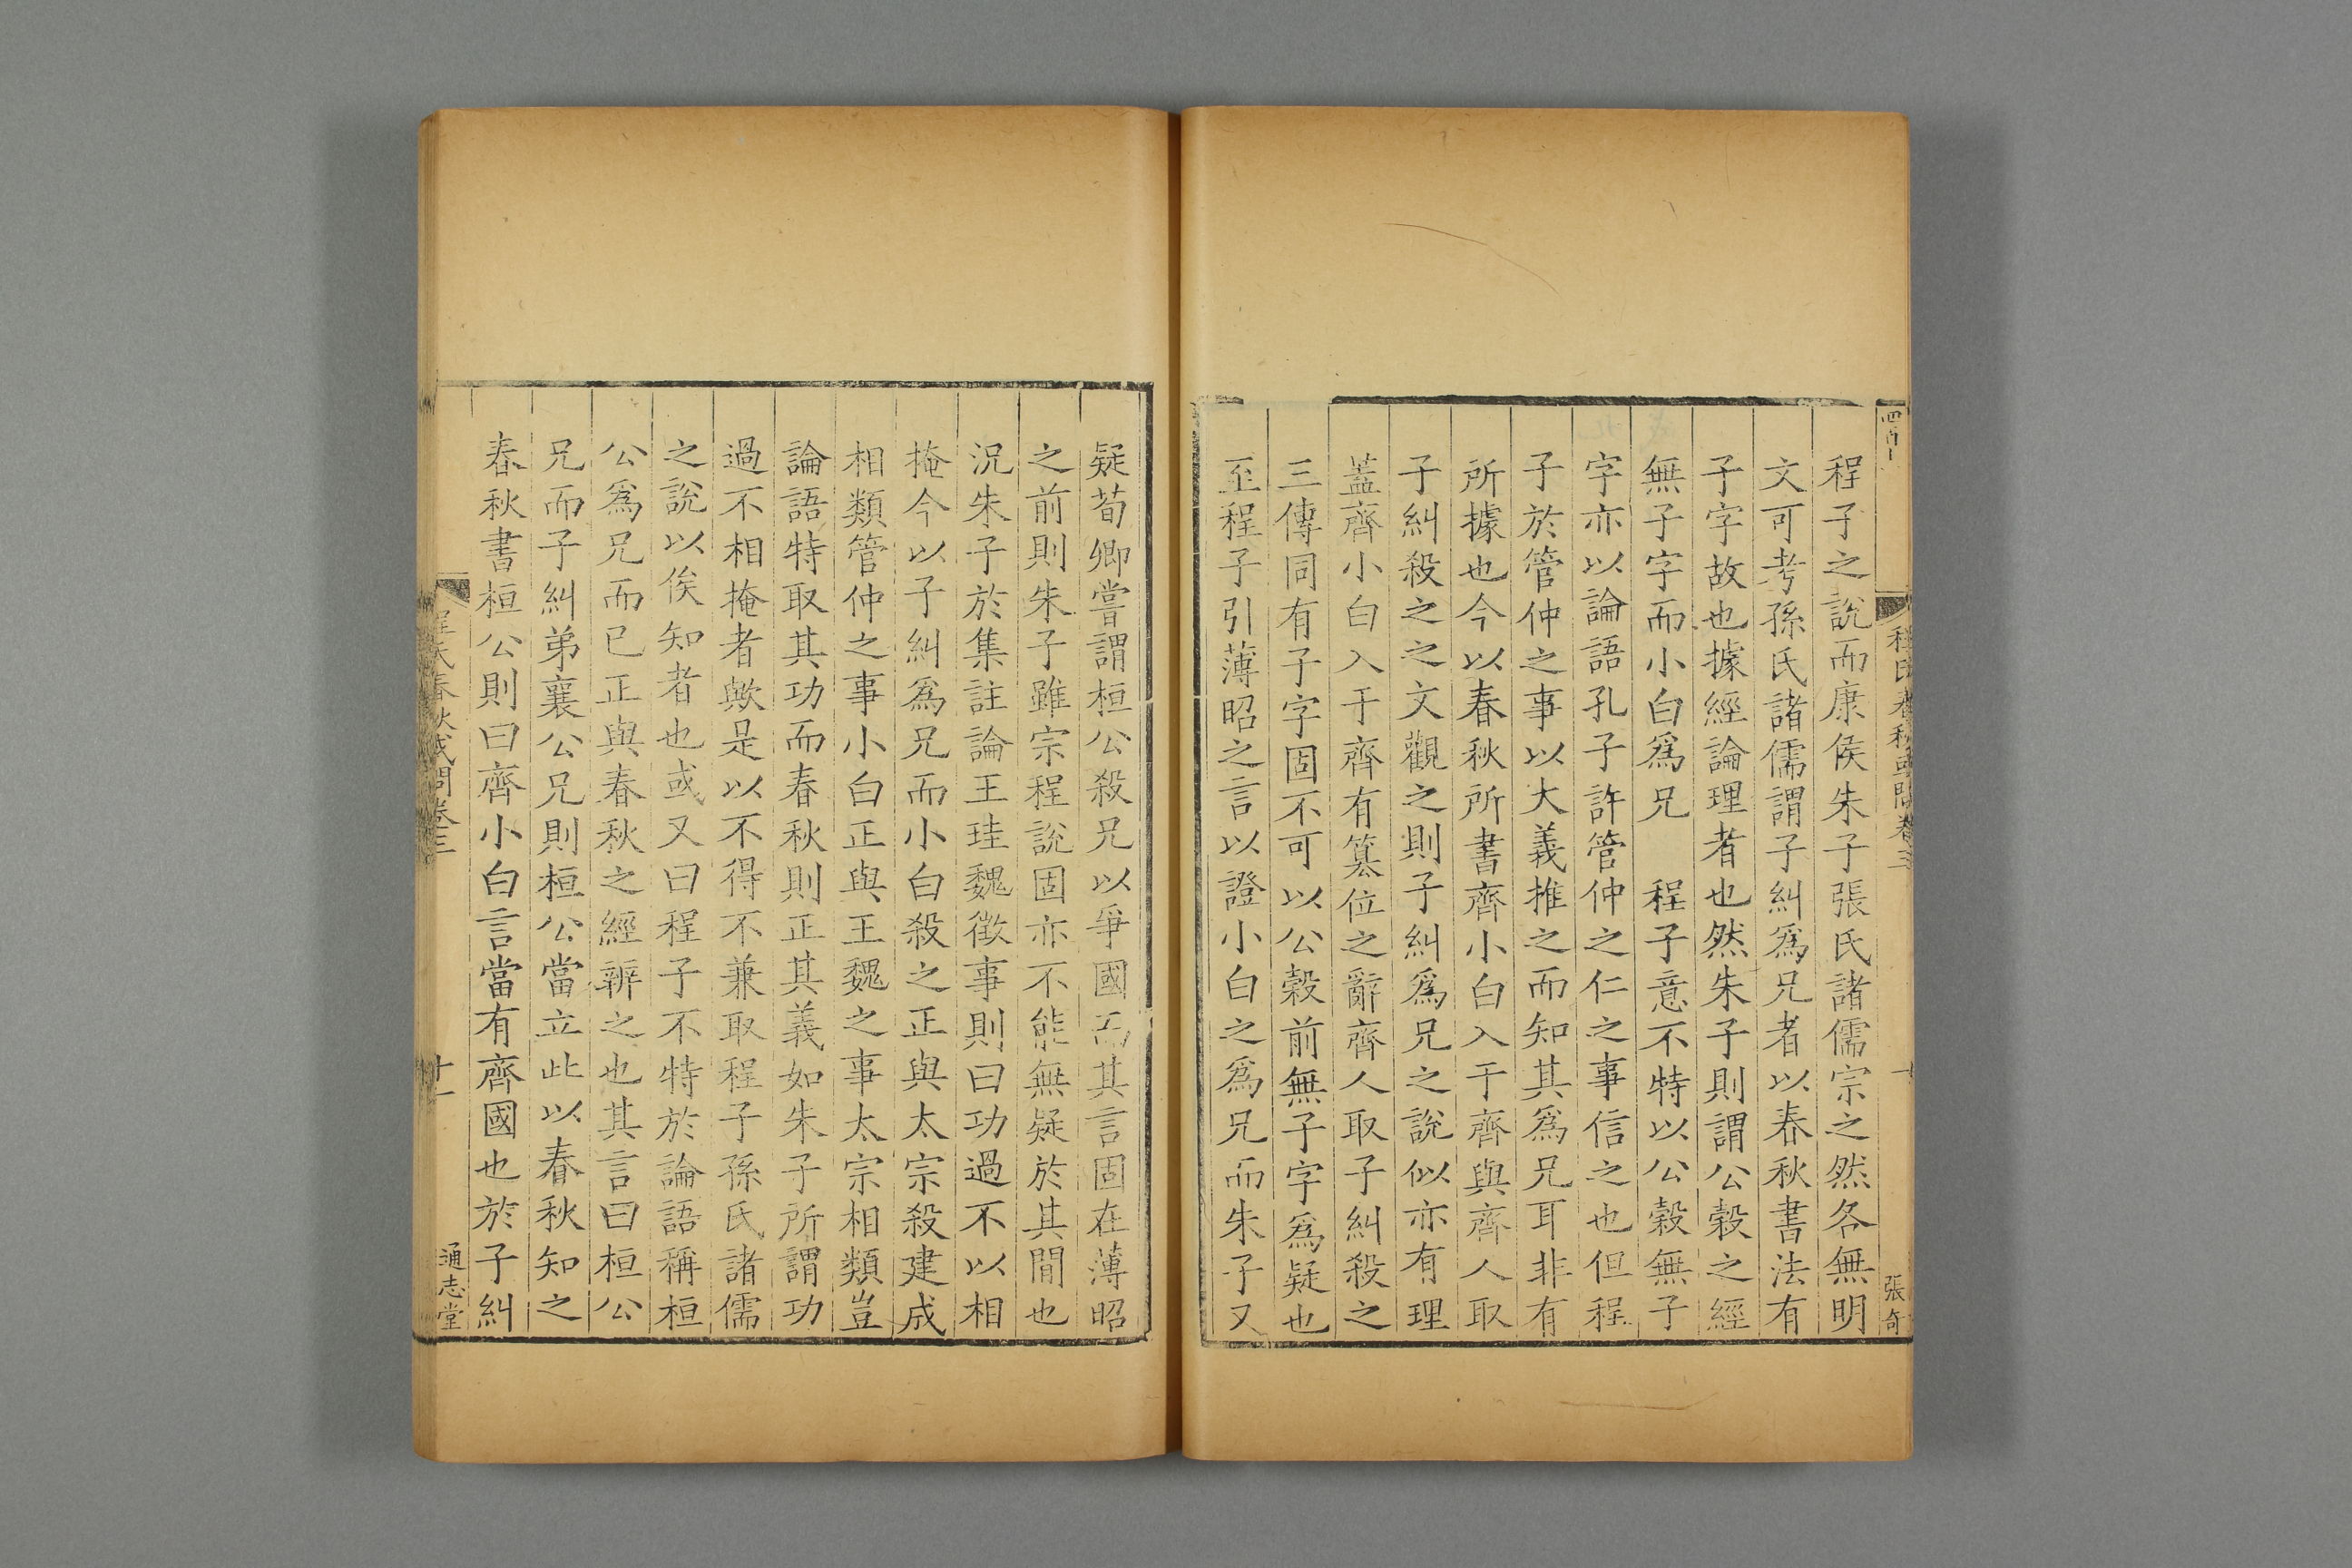 程氏春秋或問卷三
張奇
程子之說而康侯朱子張氏諸儒宗之然各無明
文可考孫氏諸儒謂子糾爲兄者以春秋書法有
子字故也據經論理者也然朱子則謂公榖之經
無子字而小白爲兄　程子意不特以公榖無子
字亦以論語孔子許管仲之仁之事信之也但程
子於管仲之事以大義推之而知其爲兄耳非有
所據也今以春秋所書齊小白入于齊與齊人取
子糾殺之之文觀之則子糾爲兄之說似亦有理
蓋齊小白入于齊有簒位之辭齊人取子糾殺之
三傳同有子字固不可以公榖前無子字爲疑也
至程子引薄昭之言以證小白之爲兄而朱子又
疑荀卿嘗謂桓公殺兄以爭國而其言固在薄昭
之前則朱子雖宗程說固亦不能無疑於其間也
況朱子於集註論王珪魏徵事則曰功過不以相
掩今以子糾爲兄而小白殺之正與太宗殺建成
相類管仲之事小白正與王魏之事太宗相類豈
論語特取其功而春秋則正其義如朱子所謂功
過不相掩者歟是以不得不兼取程子孫氏諸儒
之說以俟知者也或又曰程子不特於論語稱桓
公爲兄而已正與春秋之經辨之也其言曰桓公
兄而子糾弟襄公兄則桓公當立此以春秋知之
春秋書桓公則曰齊小白言當有齊國也於子糾
程氏春秋或問卷三
十一
通志堂